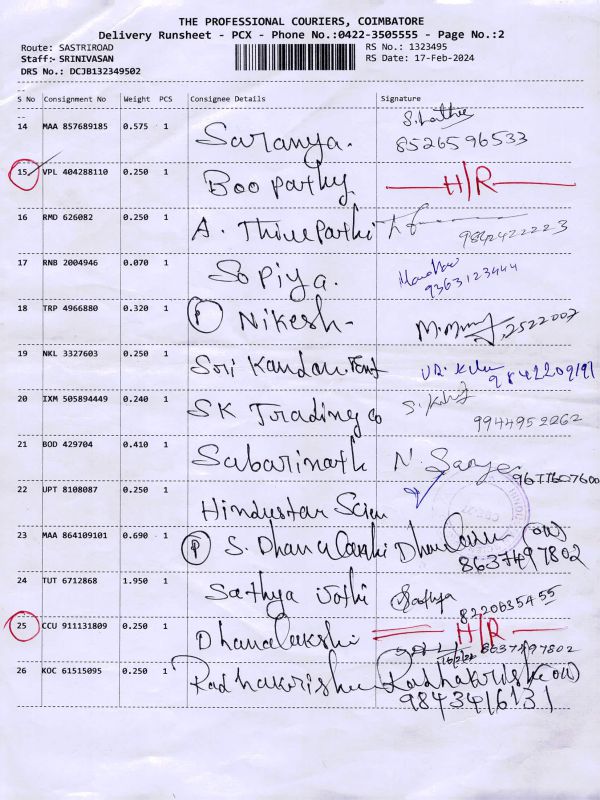 THE PROFESSIONAL COURIERS, COIMBATORE
Delivery Runsheet - PCX - Phone No.:0422-3505555 - Page No.:2
Route: SASTRIROAD RS No.: 1323495
Staff:- SRINIVASAN RS Date: 17-Feb-2024
DRS No.: DCJB132349502
S No Consignment No Weight PCS Consignee Details Signature
14 MAA 857689185 0.575 1 Saranya. 8526596533
15 VPL 404288110 0.250 1 Boopathy H/R
16 RMD 626082 0.250 1 A. Thirupathi 9842422223
17 RNB 2004946 0.070 1 Sopiya. 9363123444
18 TRP 4966880 0.320 1 (P) Nikesh- 2522007
19 NKL 3327603 0.250 1 Sri Kandan 9842209191
20 IXM 505894449 0.240 1 SK Trading Co 9944952262
21 BOD 429704 0.410 1 Sabarinath N. 9677607600
22 UPT 8108087 0.250 1 Hindustan
23 MAA 864109101 0.690 1 (P) S. 8637497802
24 TUT 6712868 1.950 1 Sathya Jothi Sathya 8220635455
25 CCU 911131809 0.250 1 Dhanalakshi H/R
8637497802
26 KOC 61515095 0.250 1 Radhakrishnan
9843416131